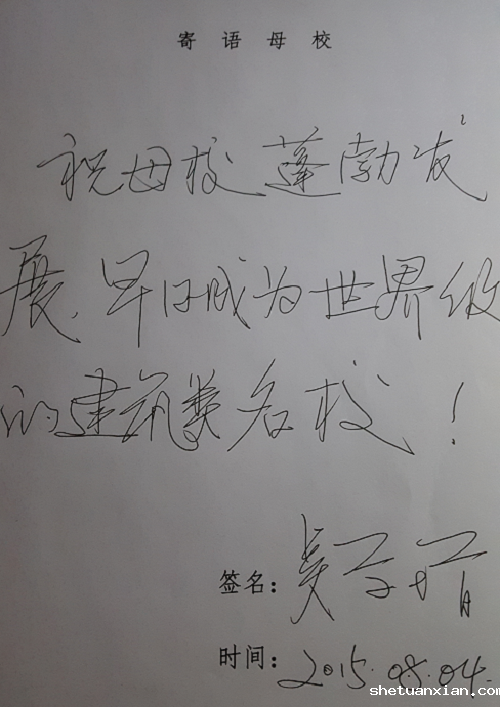 寄语母校
祝母校蓬勃发
展,早日成为世界级
的建筑类名校!
签名:吴子
时间:2015.08.04.
shetuanxian.com